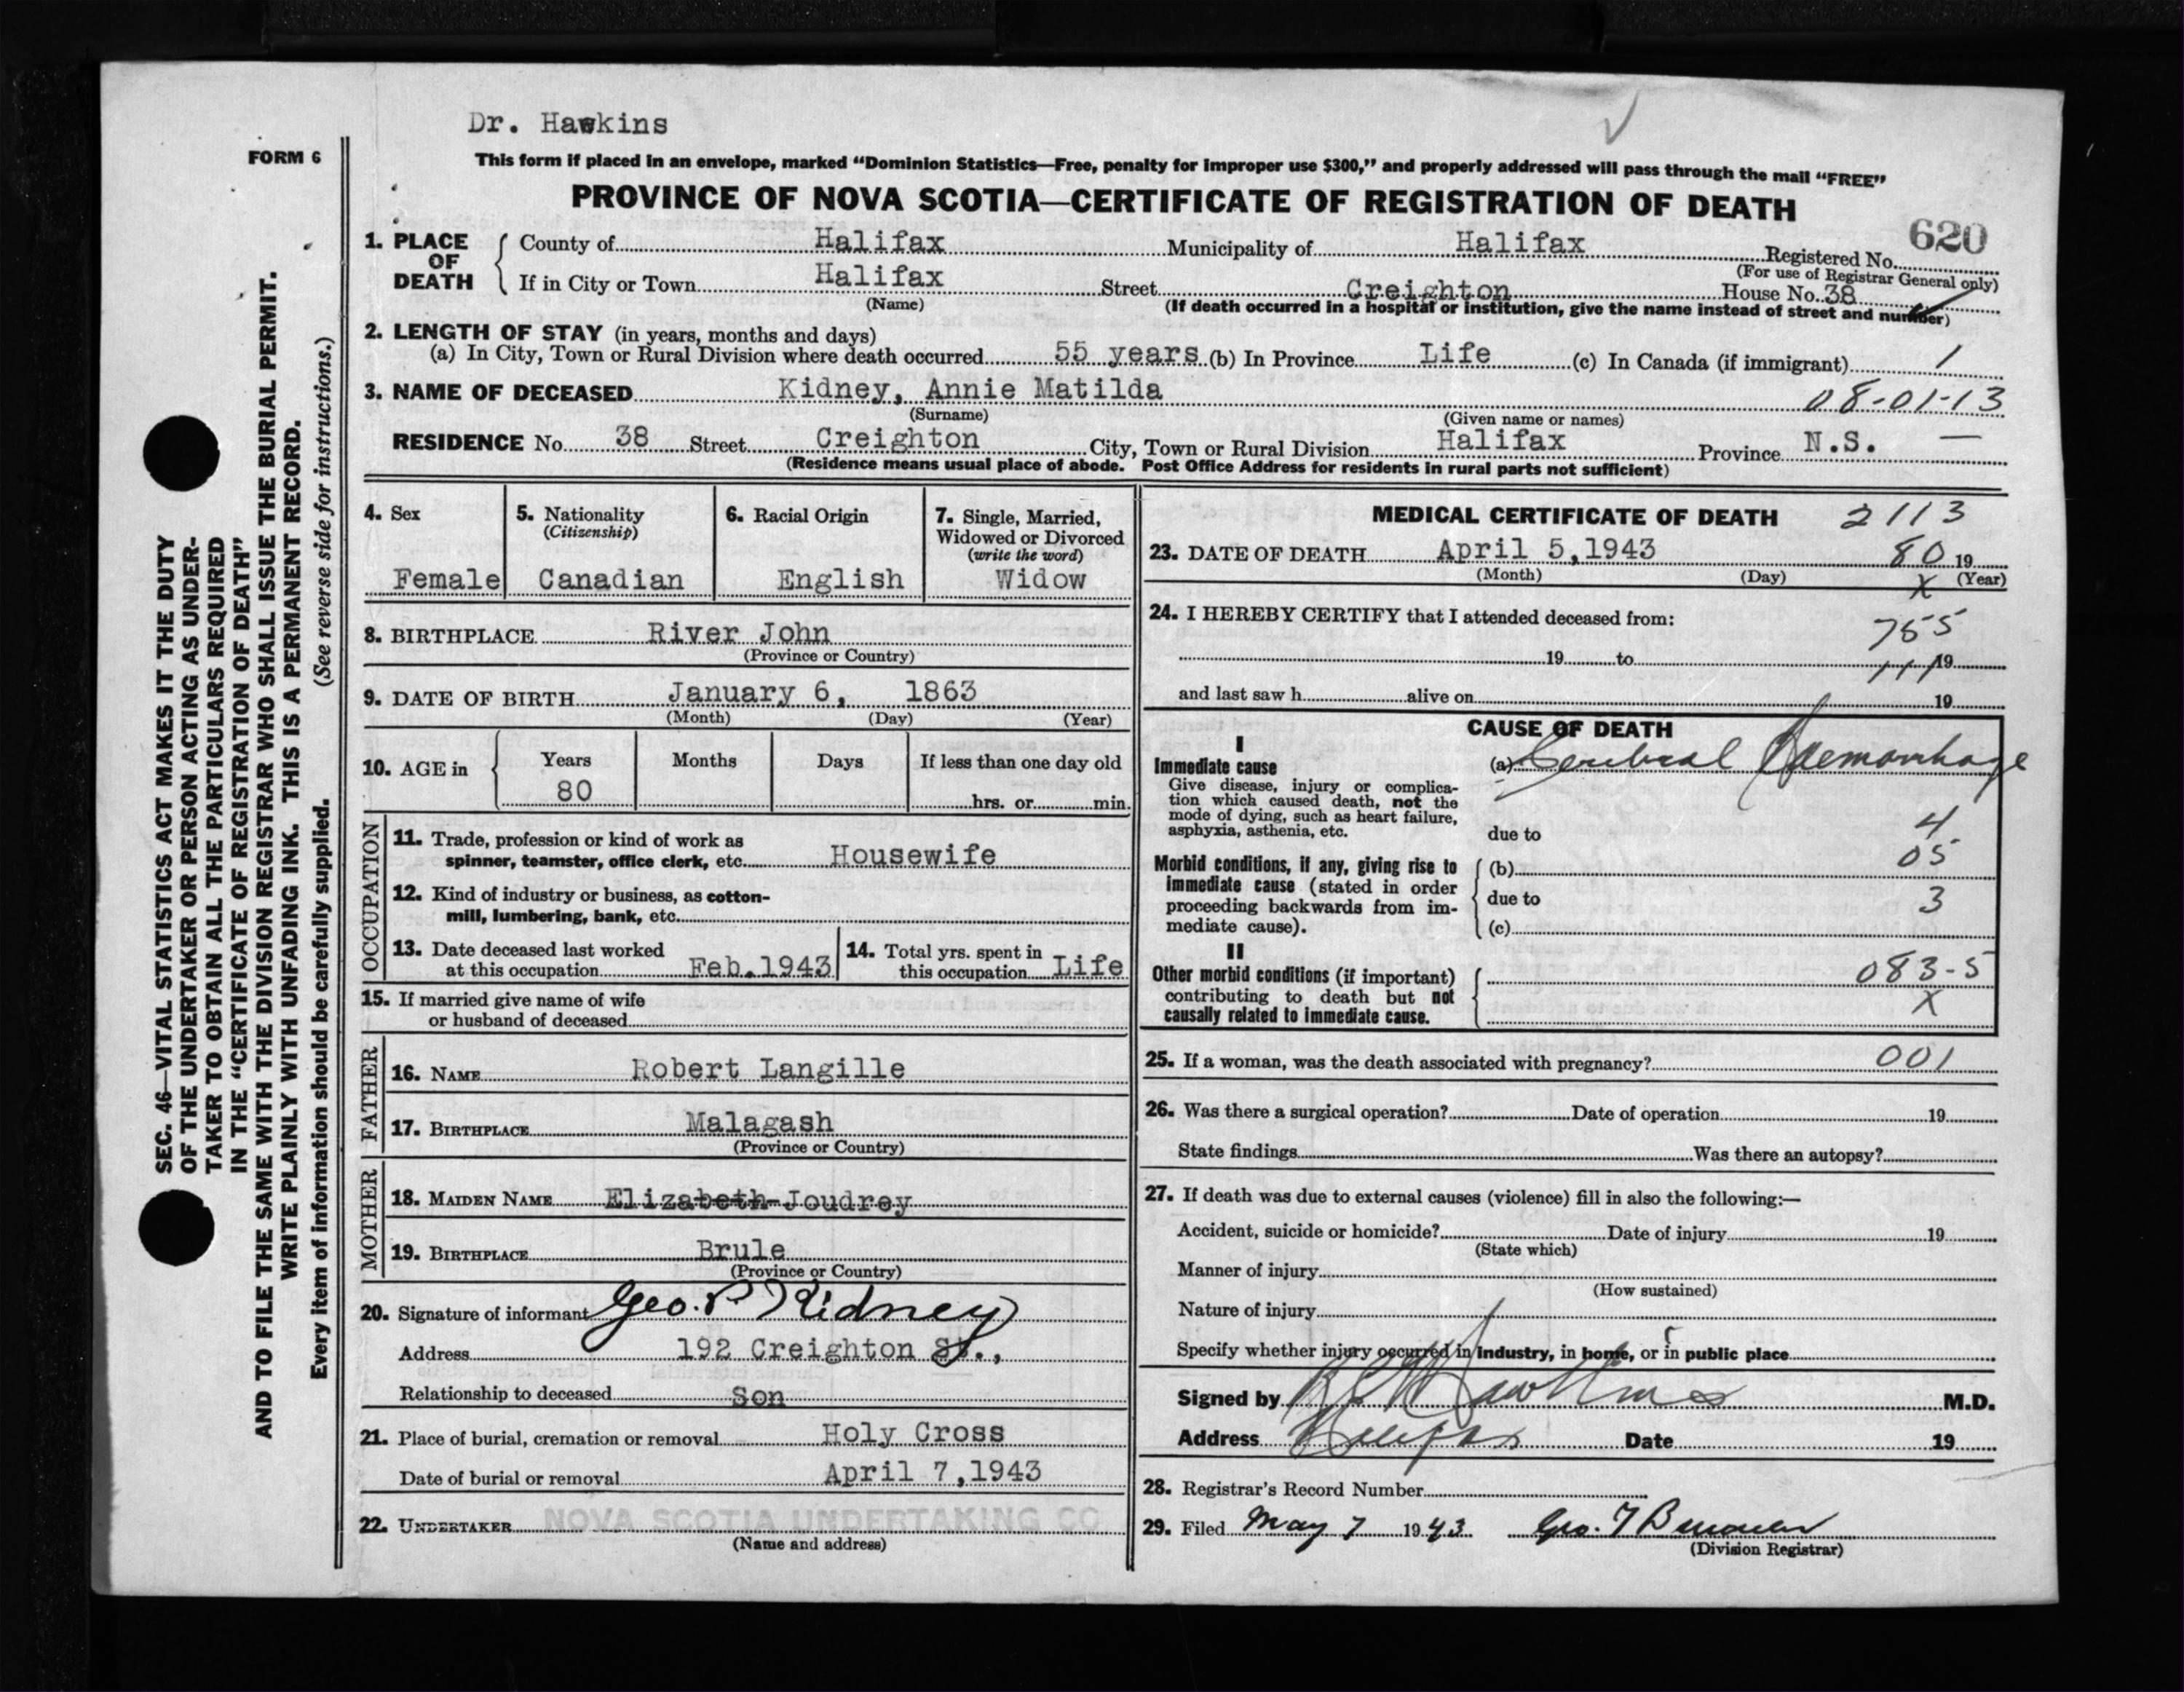 Dr. Hawkins
FORM 6
This form if placed in an envelope, marked "Dominion Statistics—Free, penalty for improper use $300," and properly addressed will pass through the mail "FREE"
PROVINCE OF NOVA SCOTIA—CERTIFICATE OF REGISTRATION OF DEATH
620
1. PLACE OF DEATH County of Halifax Municipality of Halifax Registered No.
(For use of Registrar General only)
If in City or Town Halifax Street Creighton House No. 38
(Name) (If death occurred in a hospital or institution, give the name instead of street and number)
2. LENGTH OF STAY (in years, months and days)
(a) In City, Town or Rural Division where death occurred 55 years (b) In Province Life (c) In Canada (if immigrant) 1
3. NAME OF DECEASED Kidney, Annie Matilda 08-01-13
(Surname) (Given name or names)
RESIDENCE No. 38 Street Creighton City, Town or Rural Division Halifax Province N.S. —
(Residence means usual place of abode. Post Office Address for residents in rural parts not sufficient)
4. Sex
Female
5. Nationality
(Citizenship)
Canadian
6. Racial Origin
English
7. Single, Married,
Widowed or Divorced
(write the word)
Widow
8. BIRTHPLACE River John
(Province or Country)
9. DATE OF BIRTH January 6, 1863
(Month) (Day) (Year)
10. AGE in Years Months Days If less than one day old
80 hrs. or min.
OCCUPATION
11. Trade, profession or kind of work as
spinner, teamster, office clerk, etc. Housewife
12. Kind of industry or business, as cotton-
mill, lumbering, bank, etc.
13. Date deceased last worked
at this occupation Feb.1943
14. Total yrs. spent in
this occupation Life
15. If married give name of wife
or husband of deceased
FATHER
16. NAME Robert Langille
17. BIRTHPLACE Malagash
(Province or Country)
MOTHER
18. MAIDEN NAME Elizabeth Joudrey
19. BIRTHPLACE Brule
(Province or Country)
20. Signature of informant Geo. P. Kidney
Address 192 Creighton St.,
Relationship to deceased Son
21. Place of burial, cremation or removal Holy Cross
Date of burial or removal April 7,1943
22. UNDERTAKER NOVA SCOTIA UNDERTAKING CO
(Name and address)
MEDICAL CERTIFICATE OF DEATH 2113
23. DATE OF DEATH April 5,1943 80 19
(Month) (Day) X (Year)
24. I HEREBY CERTIFY that I attended deceased from:
755
19 to 111 19
and last saw h alive on 19
CAUSE OF DEATH
I
Immediate cause
Give disease, injury or complica-
tion which caused death, not the
mode of dying, such as heart failure,
asphyxia, asthenia, etc.
(a) Cerebral Haemorrhage
due to 4
05
Morbid conditions, if any, giving rise to
immediate cause (stated in order
proceeding backwards from im-
mediate cause).
(b)
due to 3
(c)
II
Other morbid conditions (if important)
contributing to death but not
causally related to immediate cause.
083-5
X
25. If a woman, was the death associated with pregnancy? 001
26. Was there a surgical operation? Date of operation 19
State findings Was there an autopsy?
27. If death was due to external causes (violence) fill in also the following:—
Accident, suicide or homicide? Date of injury 19
(State which)
Manner of injury
(How sustained)
Nature of injury
Specify whether injury occurred in industry, in home, or in public place
Signed by Hawkins M.D.
Address Halifax Date 19
28. Registrar's Record Number
29. Filed May 7 1943 Geo. T
(Division Registrar)
SEC. 46—VITAL STATISTICS ACT MAKES IT THE DUTY
OF THE UNDERTAKER OR PERSON ACTING AS UNDER-
TAKER TO OBTAIN ALL THE PARTICULARS REQUIRED
IN THE "CERTIFICATE OF REGISTRATION OF DEATH"
AND TO FILE THE SAME WITH THE DIVISION REGISTRAR WHO SHALL ISSUE THE BURIAL PERMIT.
WRITE PLAINLY WITH UNFADING INK. THIS IS A PERMANENT RECORD.
Every item of information should be carefully supplied. (See reverse side for instructions.)